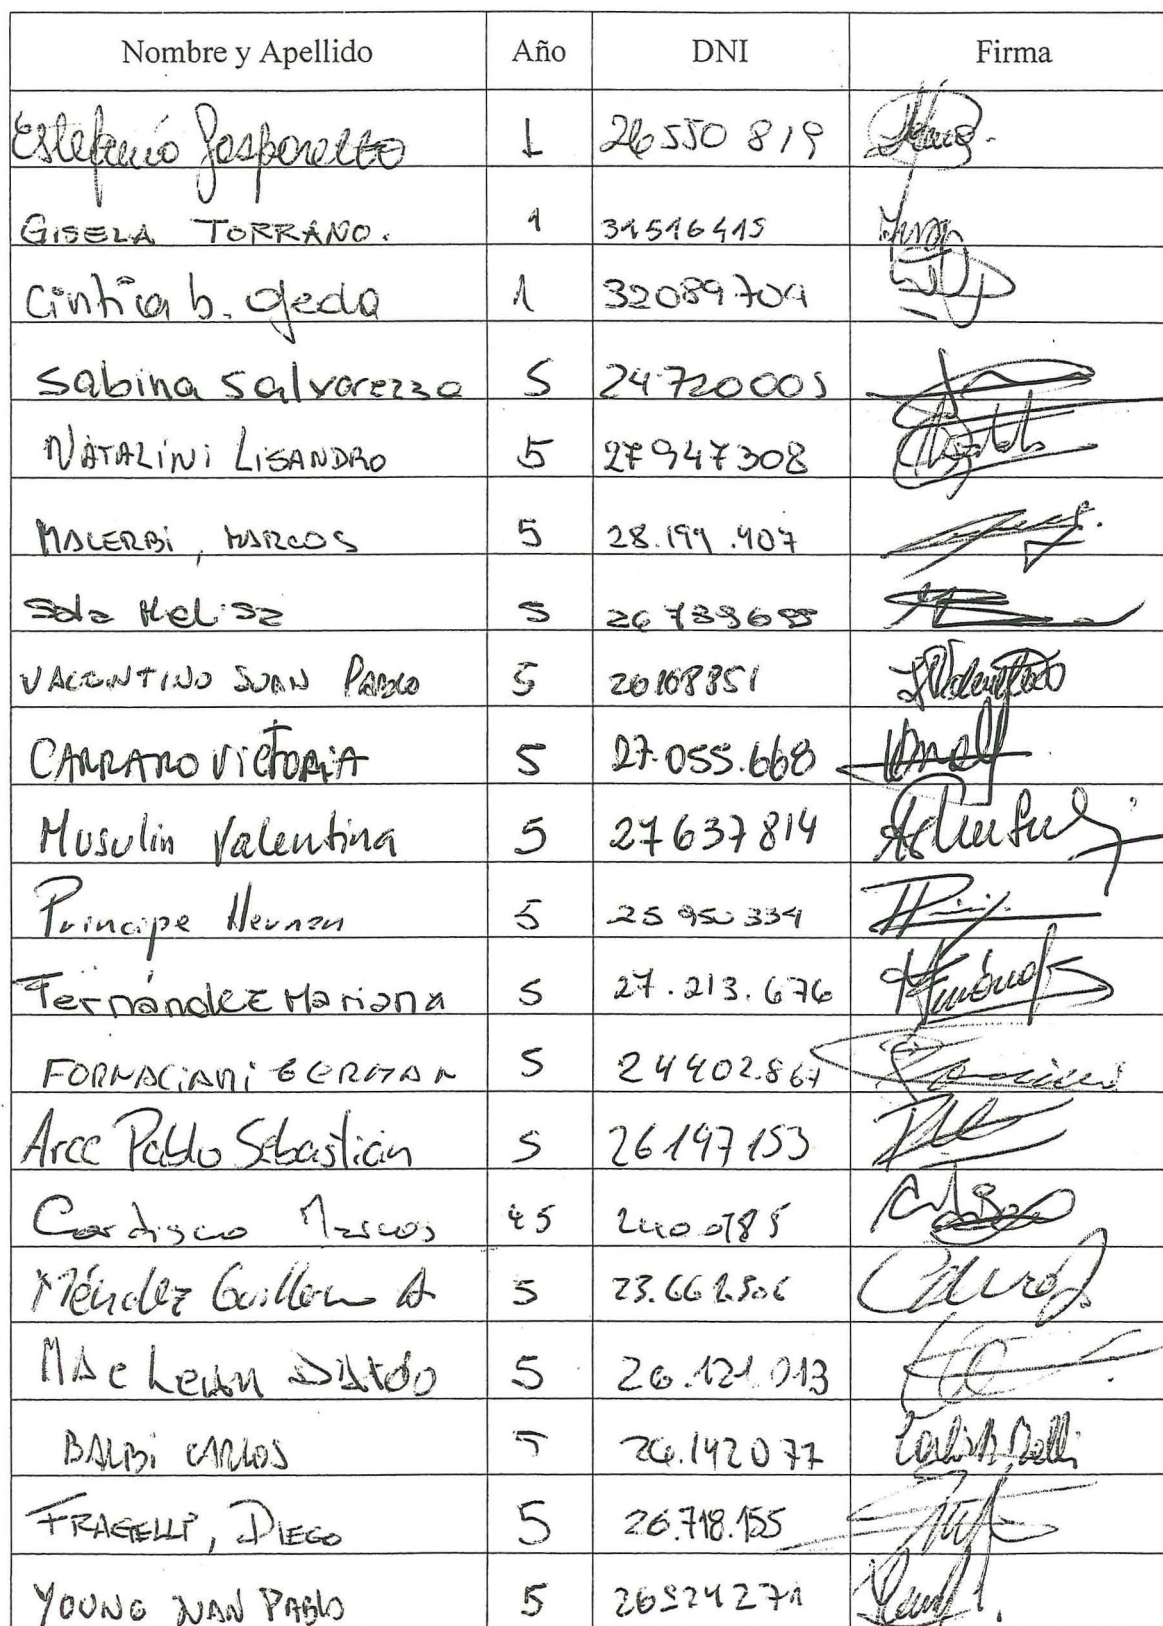 Nombre y Apellido Año DNI Firma
Estefanía Gasparetto 1 26550819
GISELA TORRANO. 1 31516415
Cintia b. Ojeda 1 32089709
Sabina Salvarezza 5 24720005
NATALINI LISANDRO 5 27947308
MALERBI, MARCOS 5 28.199.407
Sola Melisa 5
VALENTINO JUAN PABLO 5 26108851
CARRARO VICTORIA 5 27.055.668
Musulin Valentina 5 27637814
Principe Hernan 5 25950334
Fernández Mariana 5 27.213.676
FORNACIARI GERMAN 5 24402.867
Arce Pablo Sebastián 5 26197153
Cardisco Marcos 5
Méndez Guillermo A 5
MAc Lean 5 26.121.013
BALBI CARLOS 5 26.142077
FRAGELLI, DIEGO 5 26.718.155
YOUNG JUAN PABLO 5